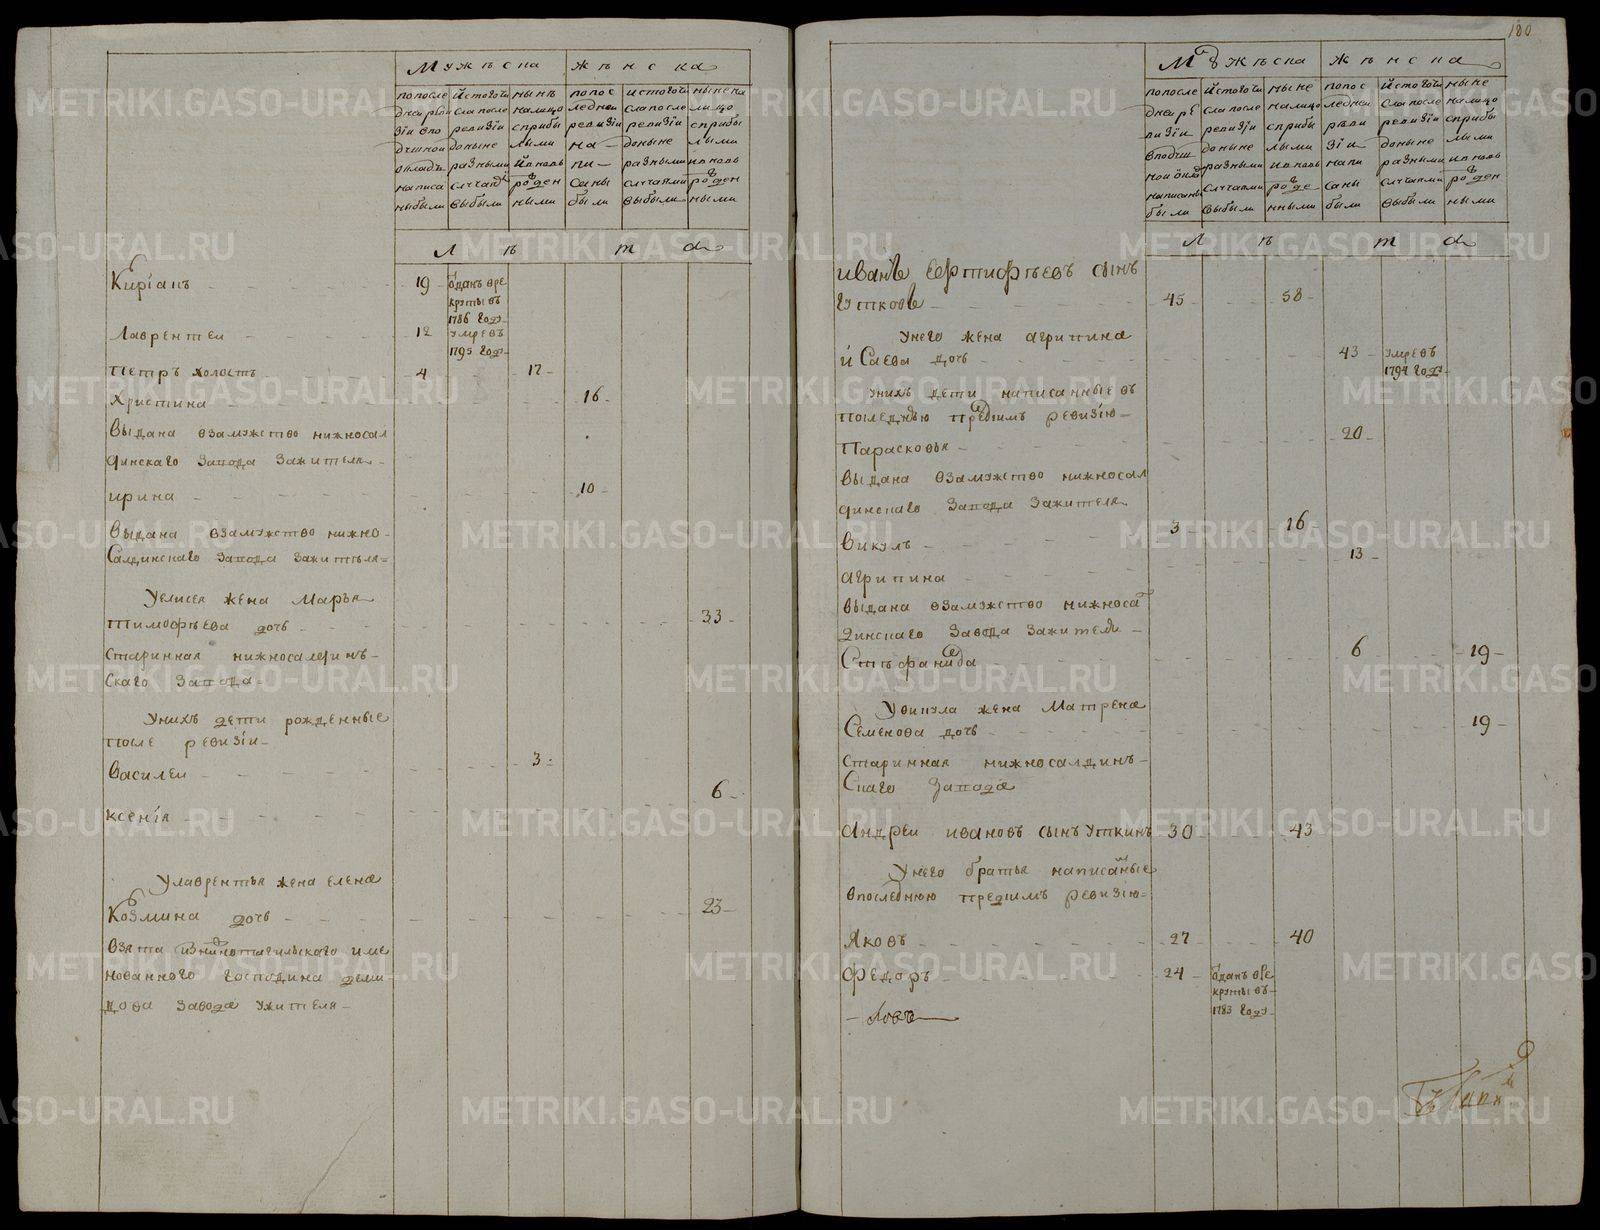 180
Мужеска
женска
по после
дней реви
зіи впо
душной
окладъ
написа
ны были
и стого чи
сла после
ревизіи
до ныне
разными
случаи
выбыли
нынѣ
налицо
сприбы
лыми
и вновь
рожден
ными
по пос
ледней
ревизіи
на
пи-
саны
были
и стого чи
сла после
ревизіи
до ныне
разными
случаями
выбыли
ныне на
лицо
сприбы
лыми
и вновь
рожден
ными
Лѣта
Киріанъ 19 отданъ вре
круты въ
1786 году
Лаврентеи 12 умре въ
1795 году
Петръ холостъ 4 17
Христина 16
выдана взамужство нижносал
динскаго завода зажителя
ирина 10
выдана взамужство нижно-
Салдинскаго завода зажителя
Уелисея жена Марья
Тимофѣева дочь 33
старинная нижносалдинъ-
скаго завода
Унихъ дети рожденные
после ревизіи
Василеи 3
ксенія 6
Улаврентья жена елена
Козмина дочь 23
взята изнижнотагильскаго име
нованного господина деми
дова завода ужителя
Мужеска
женска
по после
дней ре
визіи
в подуш
ной оклад
написаны
были
и стого чи
сла после
ревизіи
до ныне
разными
случаями
выбыли
ныне
налицо
сприбы
лыми
и вновь
рожде
нными
по пос
ледней
реви
зіи
напи
саны
были
и стого чи
сла после
ревизіи
до ныне
разными
случаями
выбыли
ныне
налицо
сприбы
лыми
и вновь
рожден
ными
Лѣта
иванъ ефтифѣевъ сынъ
Утковъ 45 58
Унего жена агрипина
исаева дочь 43 умре въ
1794 году
унихъ дети написанные въ
последнюю предъимъ ревизію
Парасковья 20
выдана взамужство нижносал
динскаго завода зажителя
Викулъ 3 16
агрипина 13
выдана взамужство нижноса
динскаго завода зажителя
Стефанида 6 19
Увикула жена Матрена
Семенова дочь 19
старинная нижносалдинъ-
скаго завода
Андреи ивановъ сынъ Уткинъ 30 43
Унего братья написанные
впоследнюю предъимъ ревизію
Яковъ 27 40
Федоръ 24 отданъ вре
круты въ
1783 году
METRIKI.GASO-URAL.RU